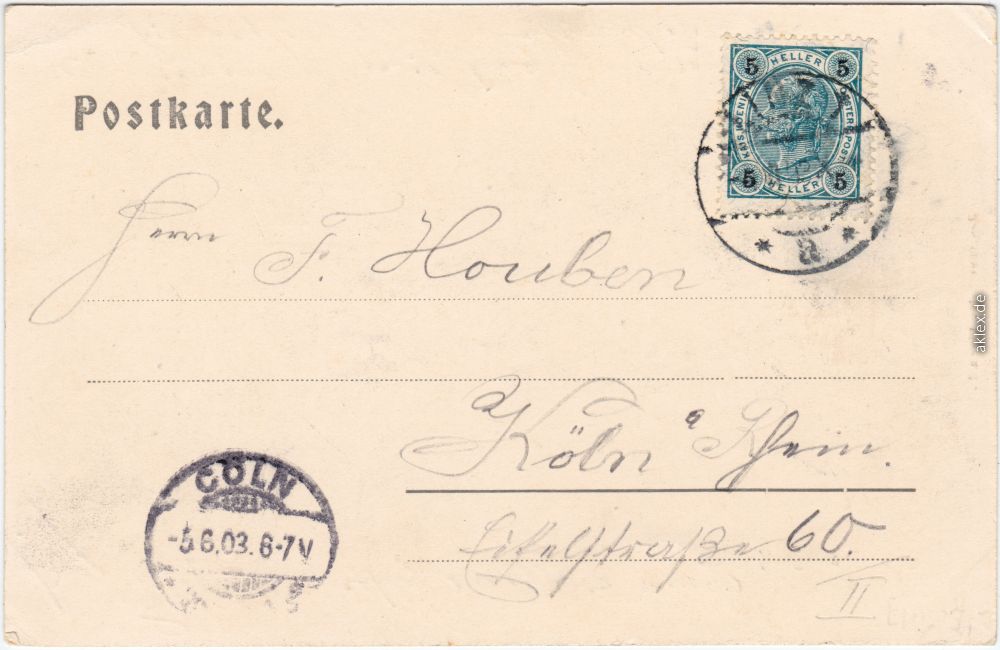 Postkarte.
5 HELLER 5
KAIS. KOENIG. OESTERR. POST.
5 HELLER 5
* a *
Herrn F. Houben
Köln a Rhein.
Eifelstraße 60.
II
CÖLN
-5.6.03. 6-7V
aklex.de